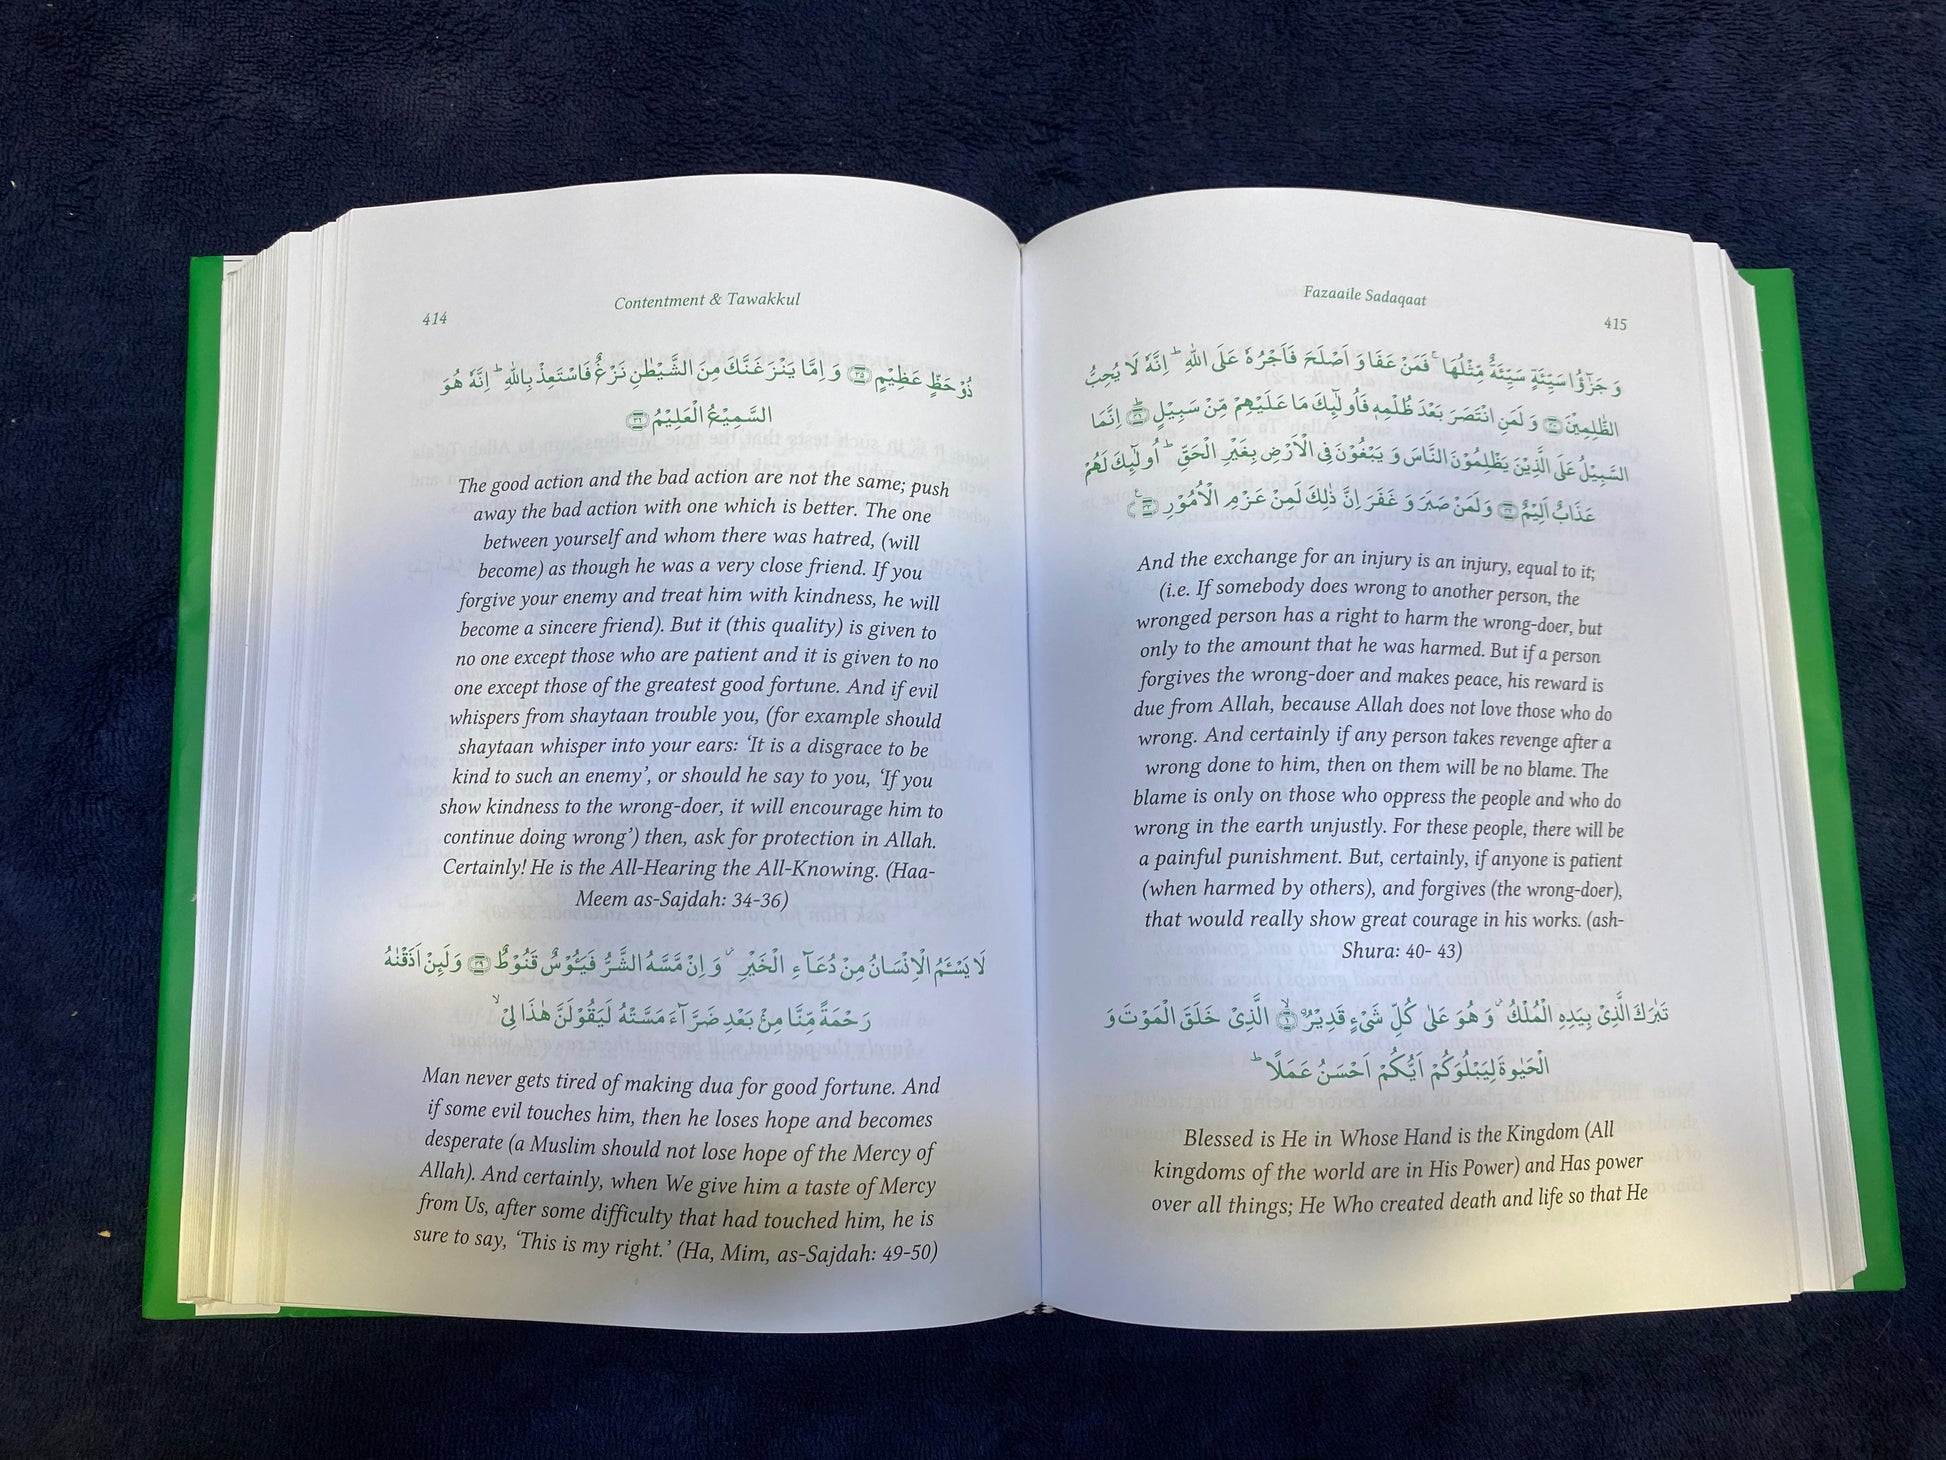 414
Contentment & Tawakkul
ذُوْ حَظٍّ عَظِيْمٍ ۝۳۵ وَ اِمَّا يَنْزَغَنَّكَ مِنَ الشَّيْطٰنِ نَزْغٌ فَاسْتَعِذْ بِاللّٰهِ ؕ اِنَّهٗ هُوَ
السَّمِيْعُ الْعَلِيْمُ ۝۳۶
The good action and the bad action are not the same; push
away the bad action with one which is better. The one
between yourself and whom there was hatred, (will
become) as though he was a very close friend. If you
forgive your enemy and treat him with kindness, he will
become a sincere friend). But it (this quality) is given to
no one except those who are patient and it is given to no
one except those of the greatest good fortune. And if evil
whispers from shaytaan trouble you, (for example should
shaytaan whisper into your ears: ‘It is a disgrace to be
kind to such an enemy’, or should he say to you, ‘If you
show kindness to the wrong-doer, it will encourage him to
continue doing wrong’) then, ask for protection in Allah.
Certainly! He is the All-Hearing the All-Knowing. (Haa-
Meem as-Sajdah: 34-36)
لَا يَسْـَٔمُ الْاِنْسَانُ مِنْ دُعَآءِ الْخَيْرِ ؗ وَ اِنْ مَّسَّهُ الشَّرُّ فَيَـُٔوْسٌ قَنُوْطٌ ۝۴۹ وَلَىِٕنْ اَذَقْنٰهُ
رَحْمَةً مِّنَّا مِنْۢ بَعْدِ ضَرَّآءَ مَسَّتْهُ لَيَقُوْلَنَّ هٰذَا لِيْ ۙ
Man never gets tired of making dua for good fortune. And
if some evil touches him, then he loses hope and becomes
desperate (a Muslim should not lose hope of the Mercy of
Allah). And certainly, when We give him a taste of Mercy
from Us, after some difficulty that had touched him, he is
sure to say, ‘This is my right.’ (Ha, Mim, as-Sajdah: 49-50)
Fazaaile Sadaqaat
415
وَ جَزٰٓؤُا سَيِّئَةٍ سَيِّئَةٌ مِّثْلُهَا ۚ فَمَنْ عَفَا وَ اَصْلَحَ فَاَجْرُهٗ عَلَى اللّٰهِ ؕ اِنَّهٗ لَا يُحِبُّ
الظّٰلِمِيْنَ ۝۴۰ وَ لَمَنِ انْتَصَرَ بَعْدَ ظُلْمِهٖ فَاُولٰٓىِٕكَ مَا عَلَيْهِمْ مِّنْ سَبِيْلٍ ۝۴۱ؕ اِنَّمَا
السَّبِيْلُ عَلَى الَّذِيْنَ يَظْلِمُوْنَ النَّاسَ وَ يَبْغُوْنَ فِى الْاَرْضِ بِغَيْرِ الْحَقِّ ؕ اُولٰٓىِٕكَ لَهُمْ
عَذَابٌ اَلِيْمٌ ۝۴۲ وَلَمَنْ صَبَرَ وَ غَفَرَ اِنَّ ذٰلِكَ لَمِنْ عَزْمِ الْاُمُوْرِ ۝۴۳
And the exchange for an injury is an injury, equal to it;
(i.e. If somebody does wrong to another person, the
wronged person has a right to harm the wrong-doer, but
only to the amount that he was harmed. But if a person
forgives the wrong-doer and makes peace, his reward is
due from Allah, because Allah does not love those who do
wrong. And certainly if any person takes revenge after a
wrong done to him, then on them will be no blame. The
blame is only on those who oppress the people and who do
wrong in the earth unjustly. For these people, there will be
a painful punishment. But, certainly, if anyone is patient
(when harmed by others), and forgives (the wrong-doer),
that would really show great courage in his works. (ash-
Shura: 40- 43)
تَبٰرَكَ الَّذِيْ بِيَدِهِ الْمُلْكُ ؗ وَ هُوَ عَلٰى كُلِّ شَيْءٍ قَدِيْرُۨ ۝۱ۙ الَّذِيْ خَلَقَ الْمَوْتَ وَ
الْحَيٰوةَ لِيَبْلُوَكُمْ اَيُّكُمْ اَحْسَنُ عَمَلًا ؕ
Blessed is He in Whose Hand is the Kingdom (All
kingdoms of the world are in His Power) and Has power
over all things; He Who created death and life so that He